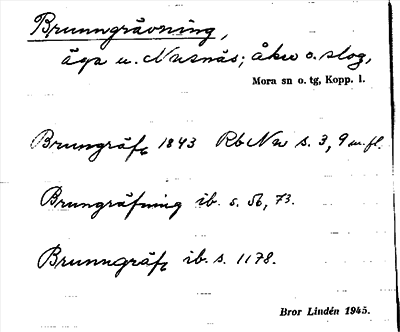 Brunngrävning,
äga u. Nusnäs; åker o. slog,
Mora sn o. tg, Kopp. l.
Brungräf 1843 Rb Nu s. 3, 9 m. fl.
Brungräfning ib. s. 56, 73.
Brunngräf ib. s. 1178.
Bror Lindén 1945.